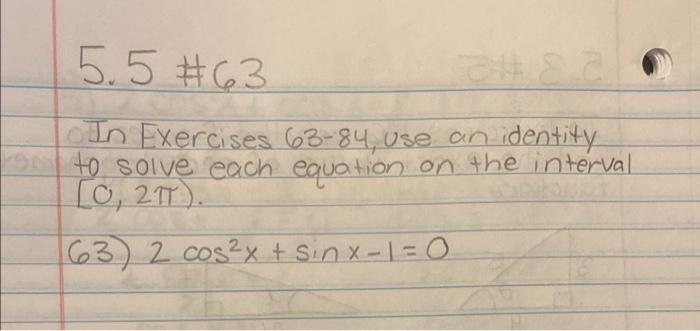 5.5 #63
In Exercises 63-84, use an identity
to solve each equation on the interval
[0, 2π).
63) 2 cos²x + sin x - 1 = 0